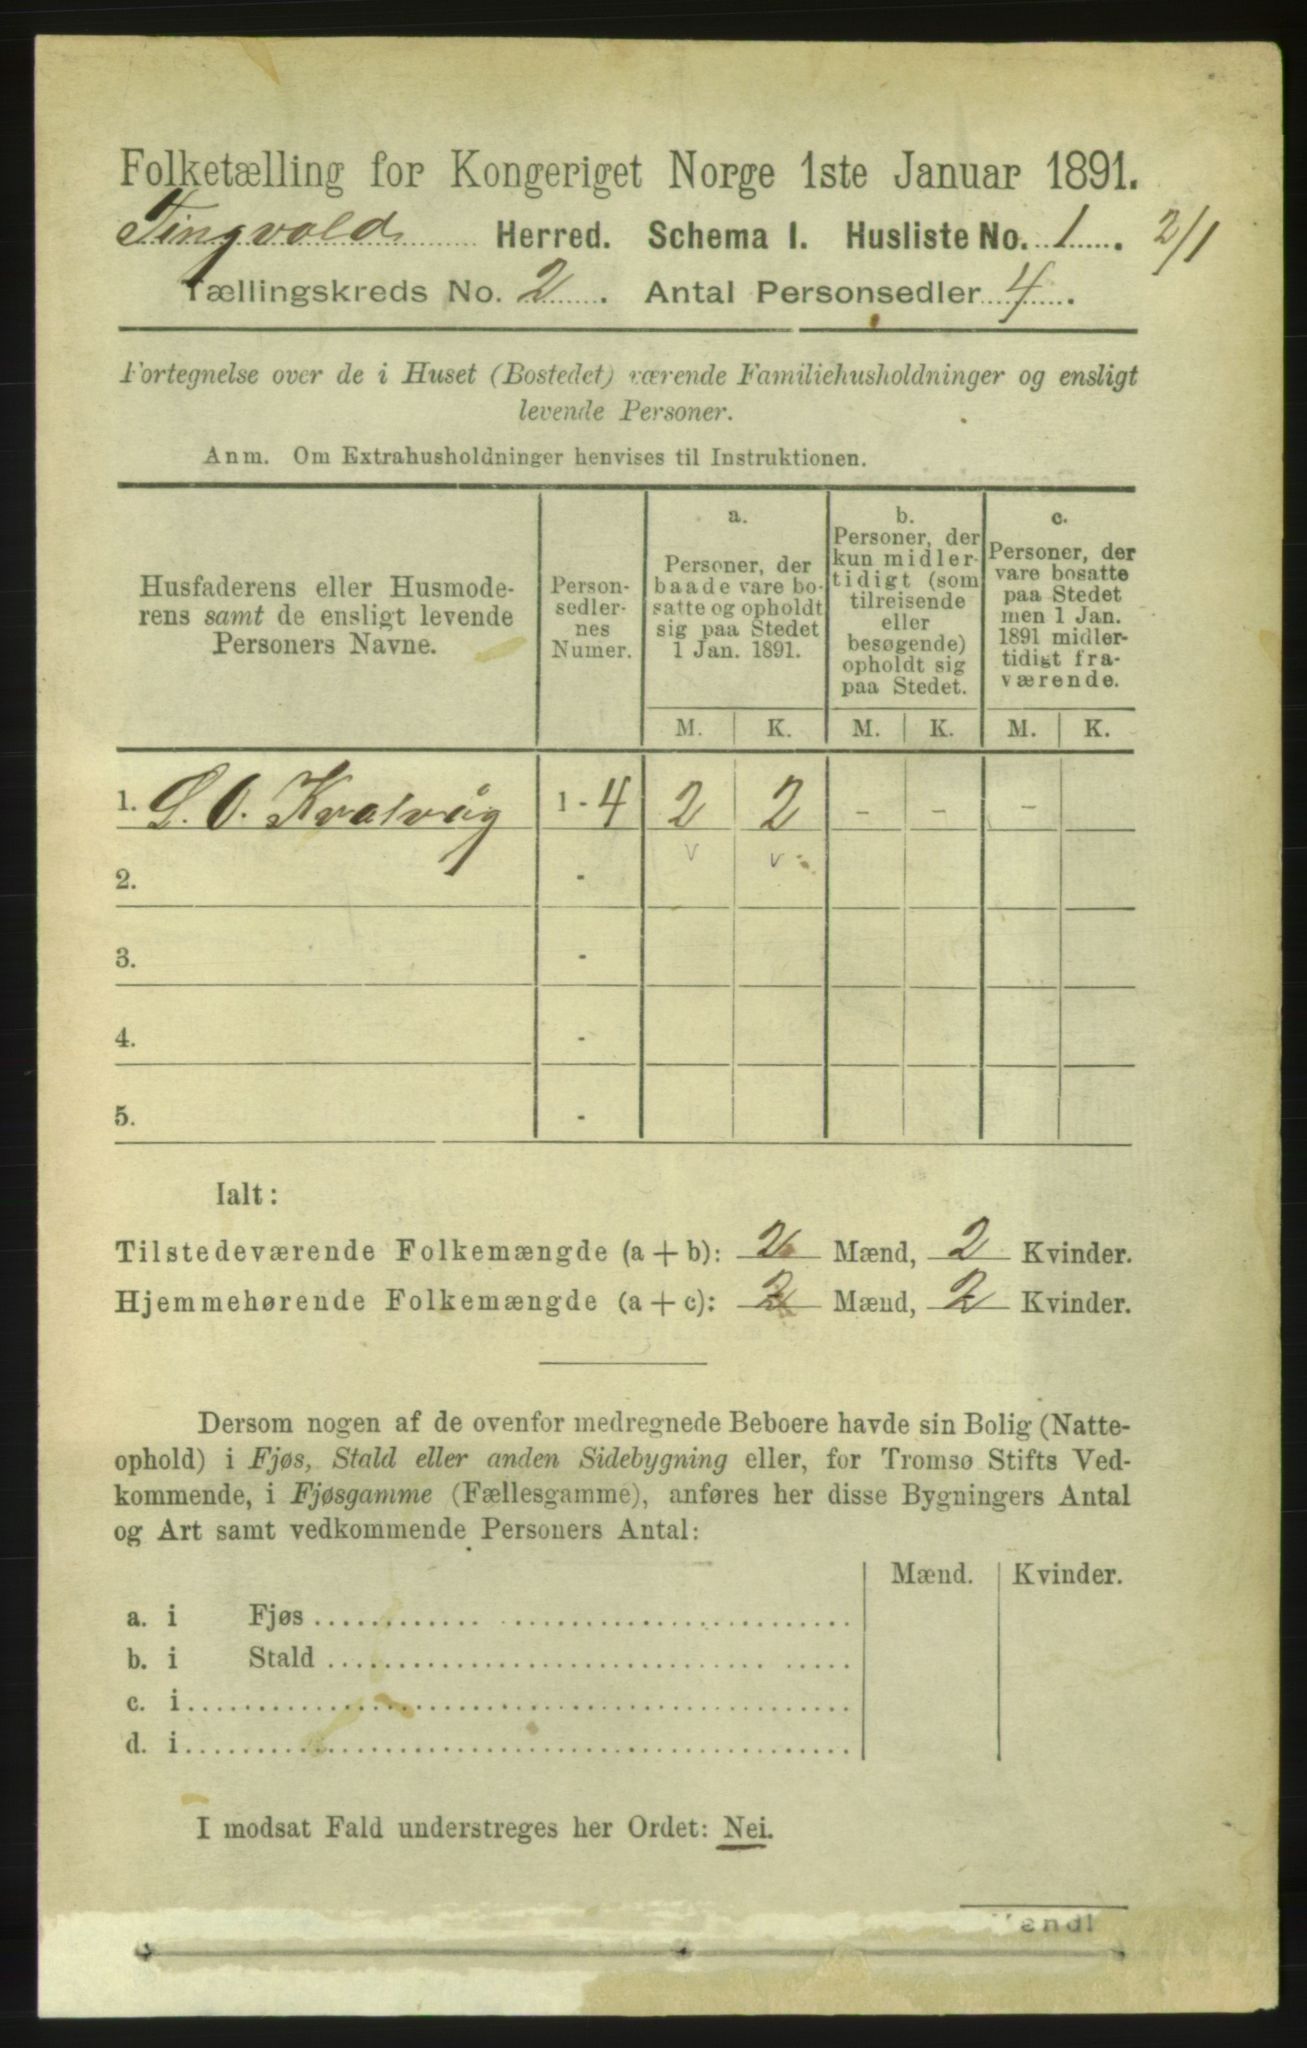 Folketælling for Kongeriget Norge 1ste Januar 1891.
Tingvold Herred. Schema I. Husliste No. 1. 2/1
Tællingskreds No. 2. Antal Personsedler 4.
Fortegnelse over de i Huset (Bostedet) værende Familiehusholdninger og ensligt
levende Personer.
Anm. Om Extrahusholdninger henvises til Instruktionen.
Husfaderens eller Husmode-
rens samt de ensligt levende
Personers Navne.
Person-
sedler-
nes
Numer.
a.
Personer, der
baade vare bo-
satte og opholdt
sig paa Stedet
1 Jan. 1891.
b.
Personer, der
kun midler-
tidigt (som
tilreisende
eller
besøgende)
opholdt sig
paa Stedet.
c.
Personer, der
vare bosatte
paa Stedet
men 1 Jan.
1891 midler-
tidigt fra-
værende.
M. K. M. K. M. K.
1. S. O. Kvalvåg 1 - 4 2 2 - - -
v v
2. -
3. -
4. -
5. -
Ialt:
Tilstedeværende Folkemængde (a + b): 2 Mænd, 2 Kvinder.
Hjemmehørende Folkemængde (a + c): 2 Mænd, 2 Kvinder.
Dersom nogen af de ovenfor medregnede Beboere havde sin Bolig (Natte-
ophold) i Fjøs, Stald eller anden Sidebygning eller, for Tromsø Stifts Ved-
kommende, i Fjøsgamme (Fællesgamme), anføres her disse Bygningers Antal
og Art samt vedkommende Personers Antal:
Mænd. Kvinder.
a. i Fjøs
b. i Stald
c. i
d. i
I modsat Fald understreges her Ordet: Nei.